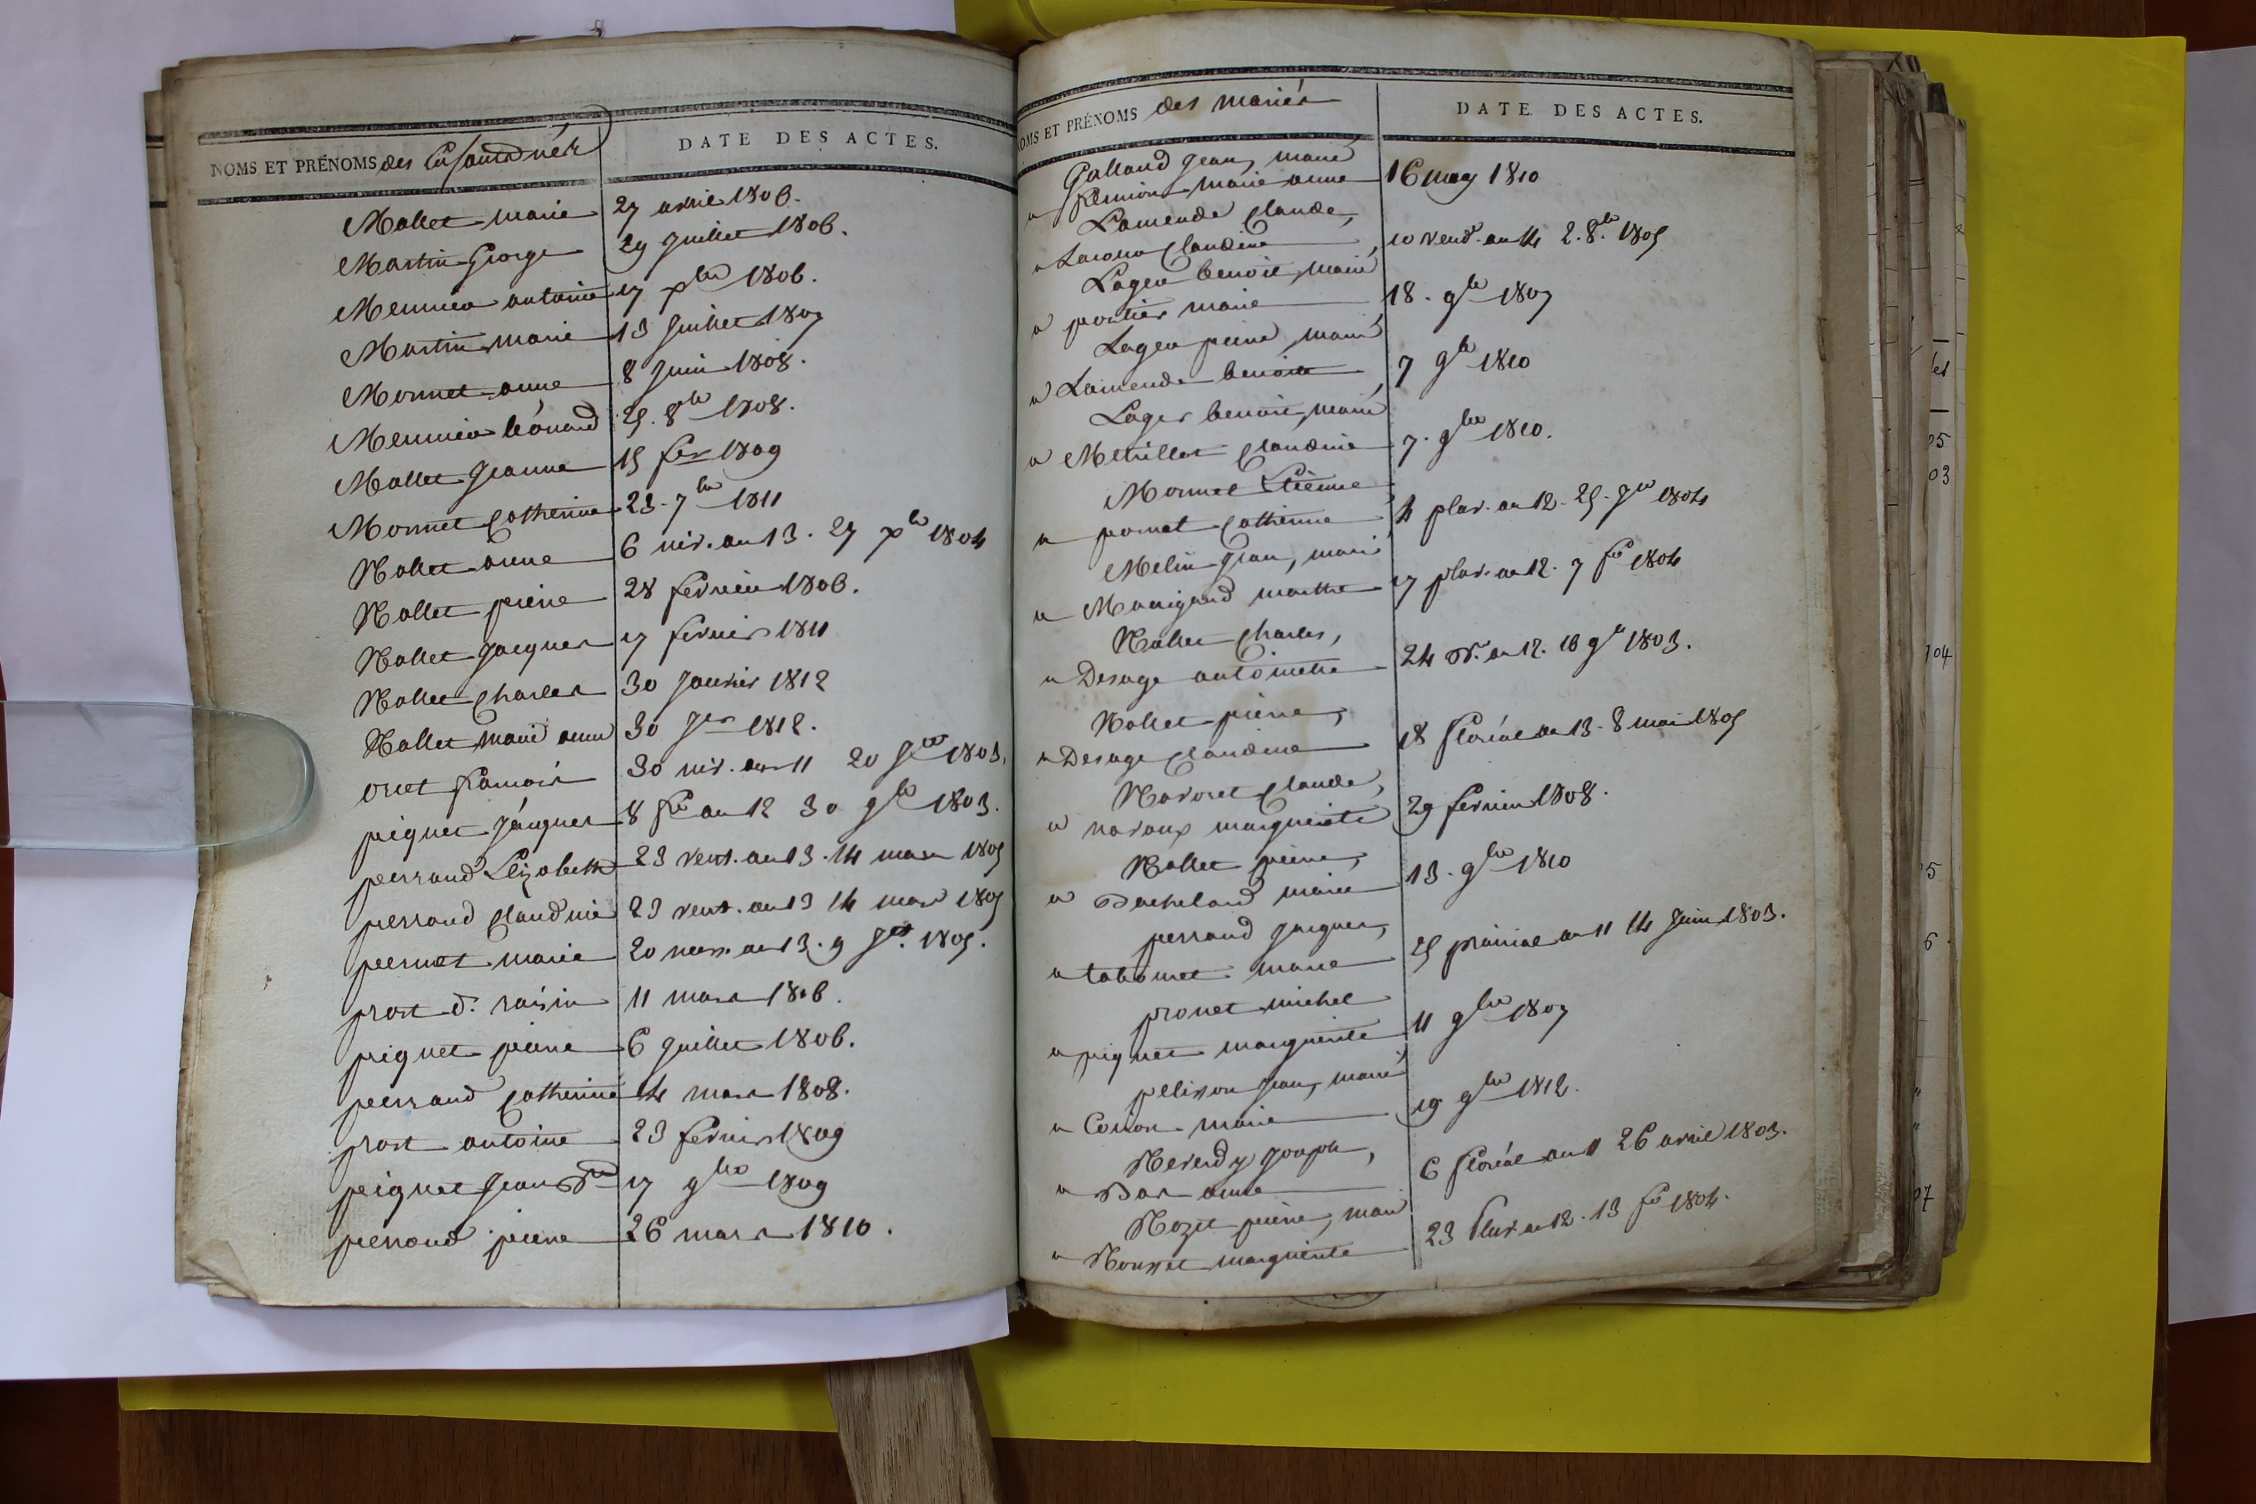 NOMS ET PRÉNOMS des Enfants nés
DATE DES ACTES.
Mallet marie 27 avril 1806.
Martin George 29 juillet 1806.
Meunier antoine 17 xbre 1806.
Martin marie 13 juillet 1807
Monnet anne 8 juin 1808.
Meunier léonard 25. 8bre 1808.
Mallet jeanne 15 fer 1809
Monnet Catherine 23. 7bre 1811
Nallet anne 6 niv. an 13. 27 xbre 1804
Nallet pierre 28 fevrier 1806.
Nallet jacques 17 fevrier 1811
Nallet Charles 30 janvier 1812
Nallet marie anne 30 jer 1812.
oret francois 30 niv. an 11 20 jer 1803.
piquet jacques 8 fre an 12 30 9bre 1803.
perraud Elizabeth 23 vent. an 13. 14 mars 1805
perraud Claudine 23 vent. an 13 14 mars 1805
pernet marie 20 niv. an 13. 9 jer. 1805.
prost d. 11 mars 1806.
piquet pierre 6 juillet 1806.
perraud Catherine 14 mars 1808.
prost antoine 23 fevrier 1809
piquet jean 17 9bre 1809
perraud pierre 26 mars 1810.
NOMS ET PRÉNOMS des mariés
DATE DES ACTES.
Galland jean, marié
a marie anne 16 may 1810
Lamende Claude,
a Claudine 10 vend. an 14 2. 8bre. 1805
Lager benoit, marié
a portier marie 18. 9bre 1807
Lager pierre, marié
a Lamende benoite 7 9bre 1810
Lager benoit, marié
a Metrillot Claudine 7. 9bre 1810.
Monnet Etienne
a pornet Catherine 4 pluv. an 12. 25. jer 1804
Melin jean, marié
a Manigand marthe 17 pluv. an 12. 7 fer 1804
Nallet Charles,
a Desage antoinette 24 Br. an 12. 16 9bre 1803.
Nallet pierre,
a Desage Claudine 18 floréal an 13. 8 mai 1805
Navoret Claude,
a navoux marguerite 29 fevrier 1808.
Nallet pierre,
a Bachelard marie 13. 9bre 1810
perraud jacques,
a tabouret marie 25 prairial an 11 14 juin 1803.
pronet michel
a piquet marguerite 11 9bre 1807
pelisson jean, marié
a marie 19 9bre 1812.
Reverdy joseph,
a Bar anne 6 floréal an 11 26 avril 1803.
Rozet pierre, marié
a Rousset marguerite 23 pluv. an 12. 13 fer 1804.